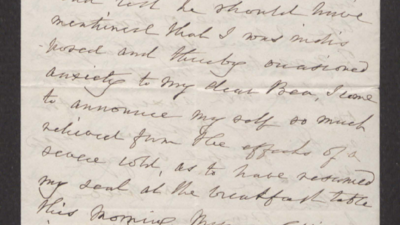 lest he should have
mentioned that I was indis
posed and thereby occasioned
anxiety to my dear Bea, I come
to announce my self so much
relieved from the effects of a
severe cold, as to have resumed
my seat at the breakfast table
this morning